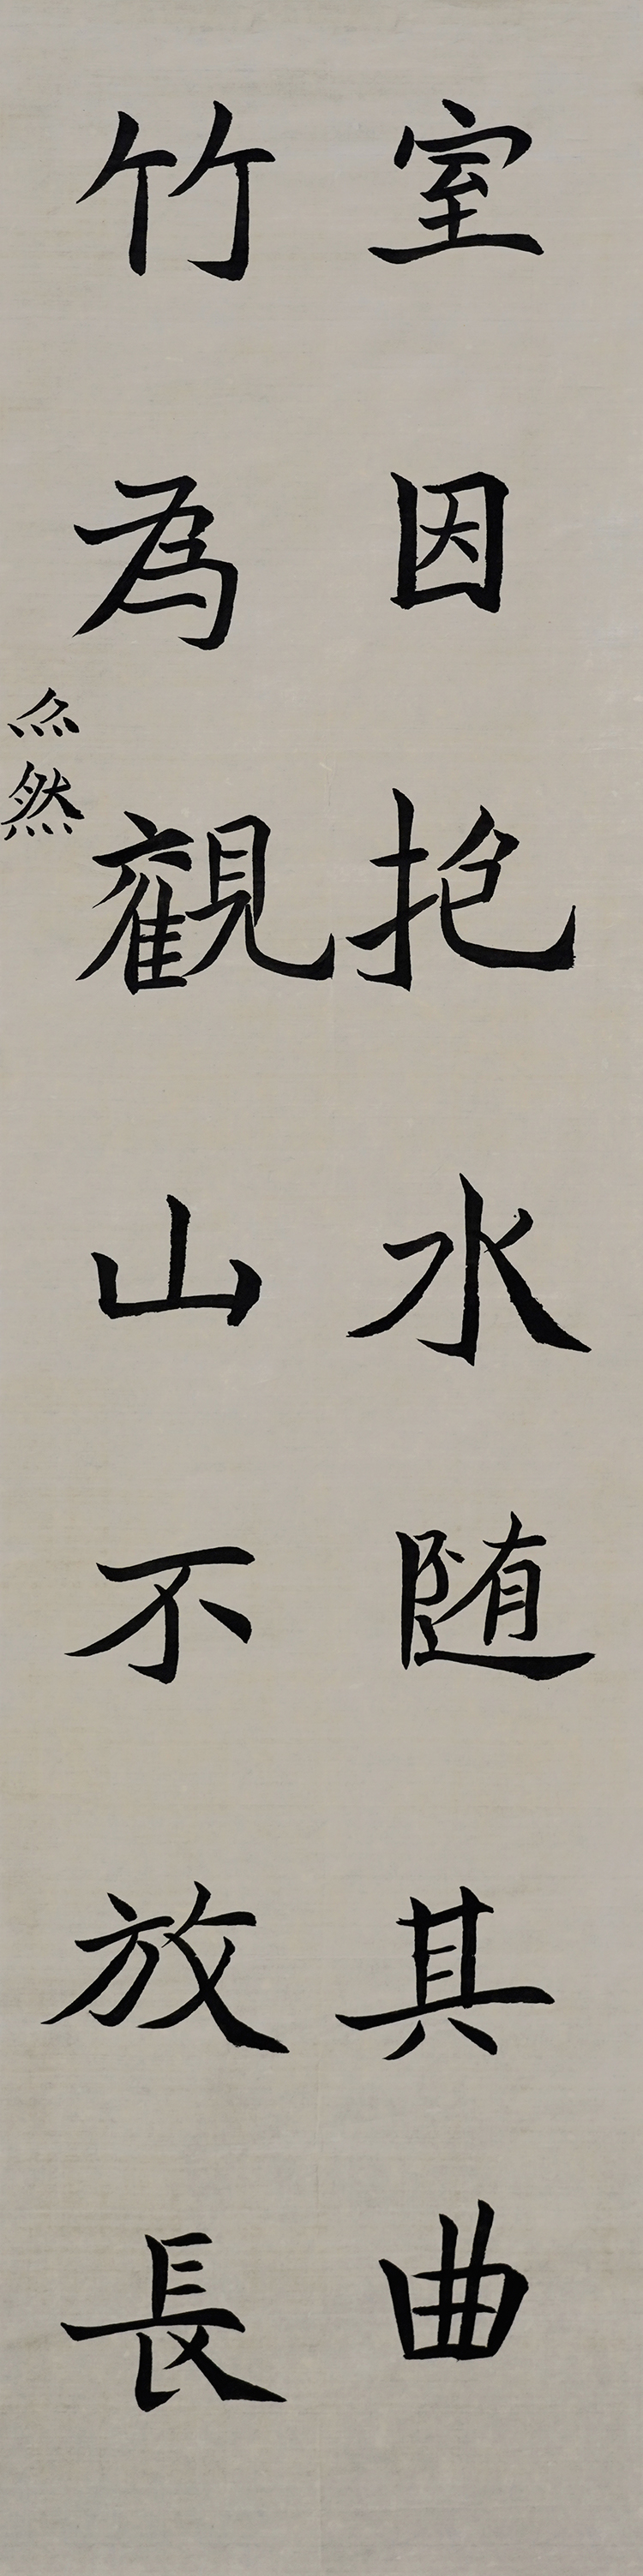 室因抱水随其曲
竹為觀山不放長
尒然